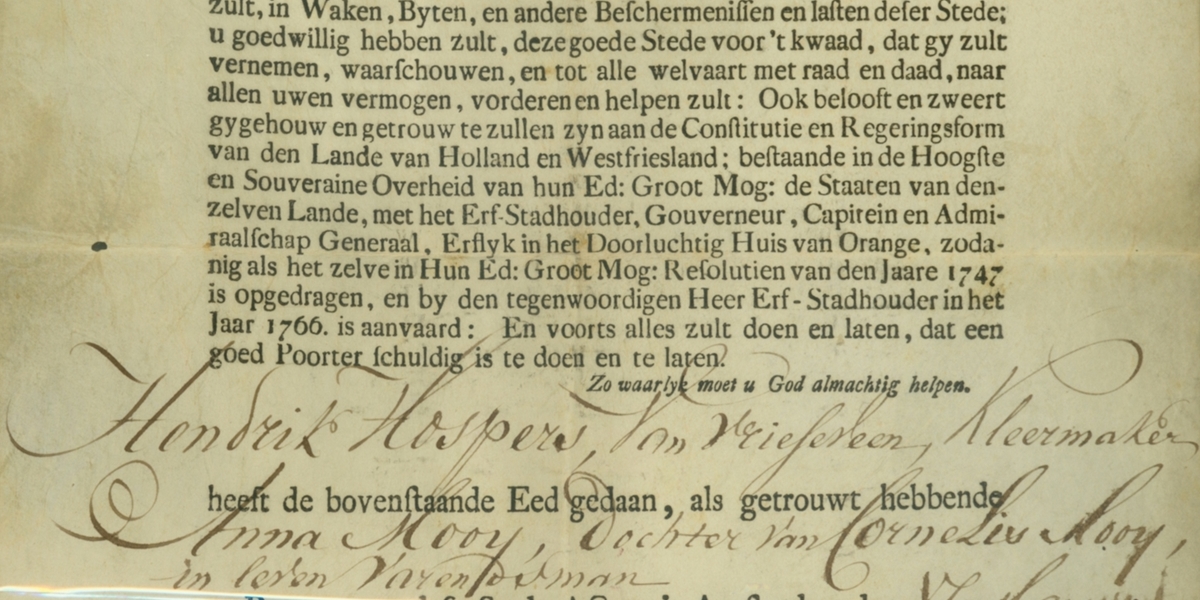 zult, in Waken, Byten, en andere Beſchermeniſſen en laſten deſer Stede;
u goedwillig hebben zult, deze goede Stede voor 't kwaad, dat gy zult
vernemen, waarſchouwen, en tot alle welvaart met raad en daad, naar
allen uwen vermogen, vorderen en helpen zult: Ook belooft en zweert
gy gehouw en getrouw te zullen zyn aan de Conſtitutie en Regeringsform
van den Lande van Holland en Westfriesland; beſtaande in de Hoogſte
en Souveraine Overheid van hun Ed: Groot Mog: de Staaten van den-
zelven Lande, met het Erf-Stadhouder, Gouverneur, Capitein en Admi-
raalſchap Generaal, Erflyk in het Doorluchtig Huis van Orange, zoda-
nig als het zelve in Hun Ed: Groot Mog: Reſolutien van den Jaare 1747
is opgedragen, en by den tegenwoordigen Heer Erf-Stadhouder in het
Jaar 1766. is aanvaard: En voorts alles zult doen en laten, dat een
goed Poorter ſchuldig is te doen en te laten.
Zo waarlyk moet u God almachtig helpen.
Hendrik Hospers, Van Vrieseveen, Kleermaker
heeft de bovenſtaande Eed gedaan, als getrouwt hebbende
Anna Mooy, Dochter van Cornelis Mooy,
in leven Varendsman